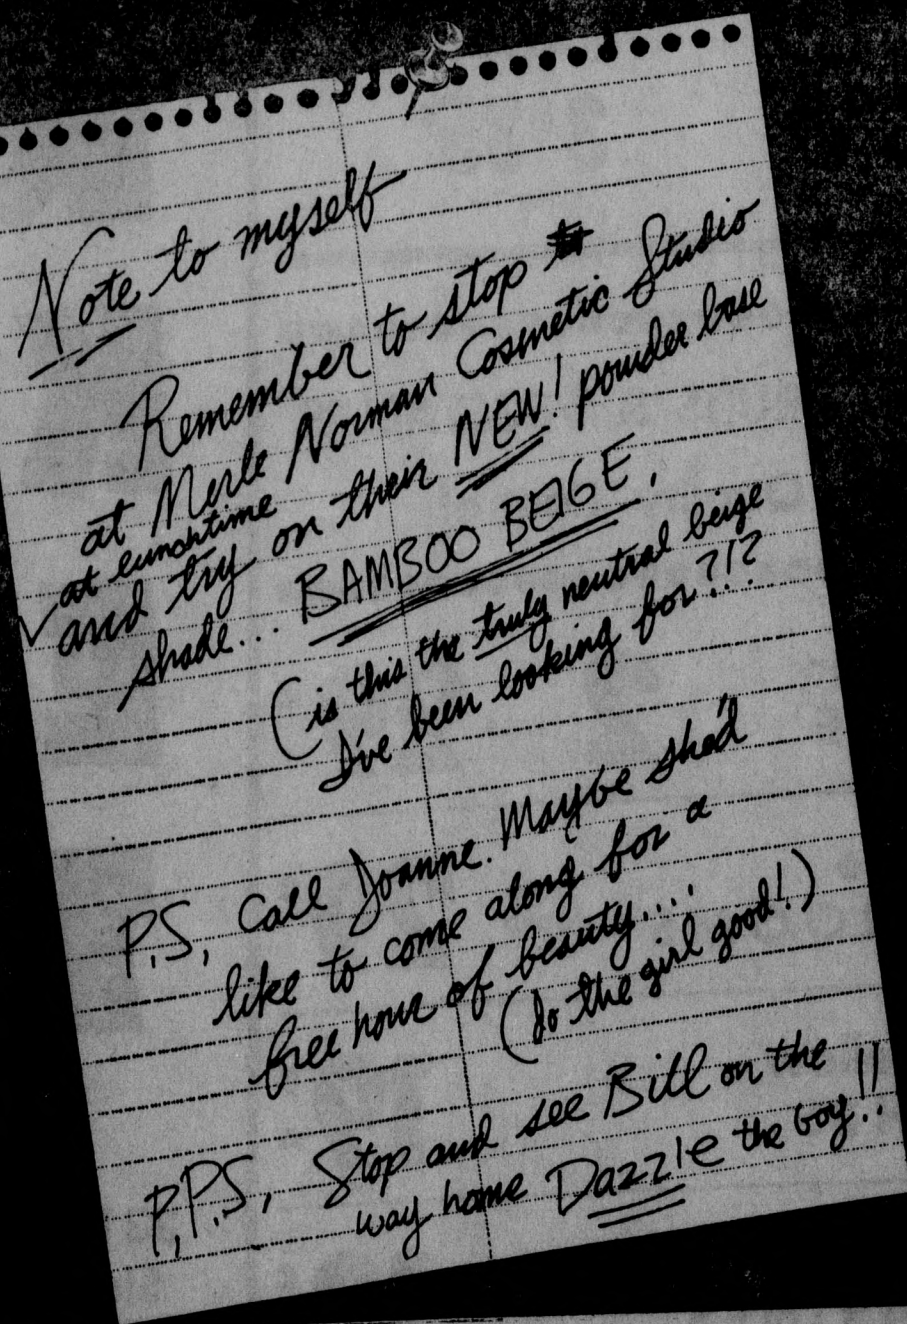 Note to myself
Remember to stop
at Merle Norman Cosmetic Studio
at lunchtime
and try on their NEW! powder base
shade... BAMBOO BEIGE.
(is this the truly neutral beige
I've been looking for?!?
P.S, Call Joanne. Maybe she'd
like to come along for a
free hour of beauty....
(do the girl good!)
P.P.S, Stop and see Bill on the
way home Dazzle the boy!!